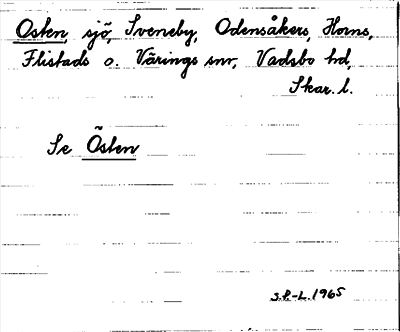 Osten, sjö, Sveneby, Odensåkers, Horns,
Flistads o. Värings snr, Vadsbo hd,
Skar. l.
Se Östen
S.P.-L. 1965